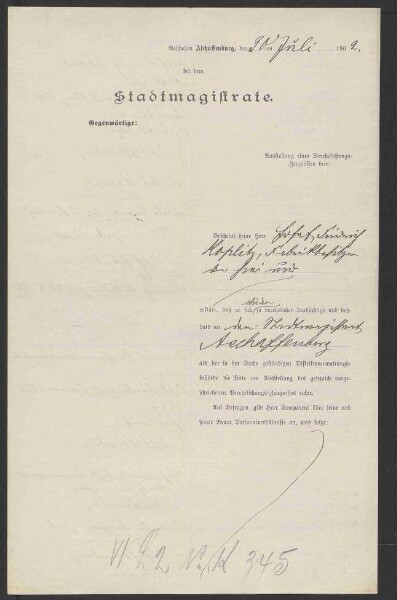 Geschehen Aschaffenburg, den 30ten Juli 1902.
bei dem
Stadtmagistrate.
Gegenwärtige:
Ausstellung eines Verehelichungs-
Zeugnisses betr.
Erscheint heute Herr Josef Friedrich
Koplitz, Fabrikbesitzer
da hier und
erklärt, daß er sich zu verehelichen beabsichtige und des-
halb an den Stadtmagistrat
Aschaffenburg
als der in der Sache zuständigen Distriktsverwaltungs-
behörde die Bitte um Ausstellung des gesetzlich vorge-
schriebenen Verehelichungs-Zeugnisses richte.
Auf Befragen gibt Herr Comparent über seine und
seiner Braut Personalverhältnisse an, was folgt:
VI 22 No. K 345